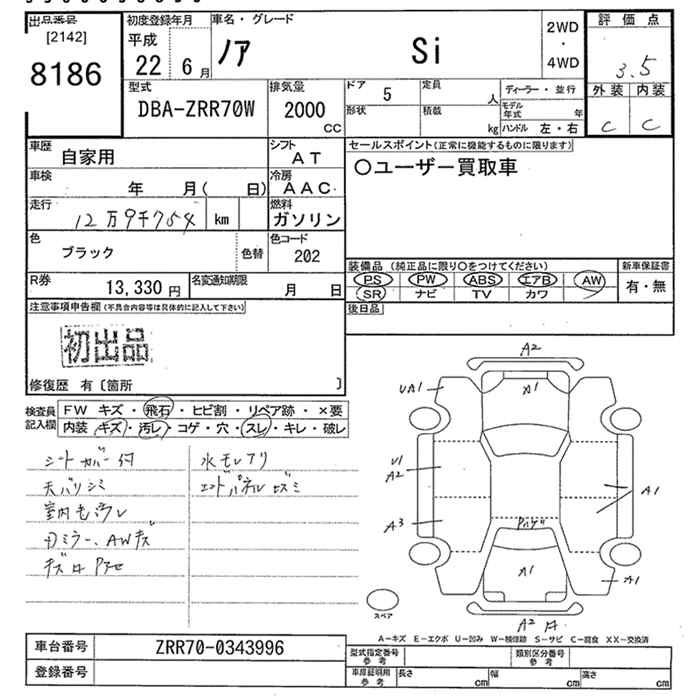 出品番号 初度登録年月 車名・グレード 2WD 評価点
[2142] 平成 ノア Si ・ 3.5
8186 22 6月 4WD 外装 内装
C C
型式 排気量 ドア 5 定員 人 ディーラー・並行
DBA-ZRR70W 2000 cc 形状 積載 kg モデル年式 年
ハンドル 左・右
車歴 自家用 シフト AT セールスポイント(正常に機能するものに限ります)
○ユーザー買取車
車検 年 月( 日) 冷房 AAC
走行 12万9千754 km 燃料 ガソリン
色 ブラック 色替 色コード 202
装備品 (純正品に限り○をつけてください) 新車保証書
R券 13,330円 名変通知期限 月 日 PS PW ABS エアB AW 有・無
SR ナビ TV カワ
注意事項申告欄(不具合内容等は具体的に記入して下さい) 後日品
初出品
修復歴 有〔箇所 〕
検査員記入欄 FW キズ・飛石・ヒビ割・リペア跡・×要
内装 キズ・汚レ・コゲ・穴・スレ・キレ・破レ
シートカバー付 水モレアリ
天バリシミ
室内毛汚レ
A2
UA1
A1
U1
A2
A1
A3
A1
A1
A2
スペア
A−キズ E−エクボ U−凹み W−補修跡 S−サビ C−腐食 XX−交換済
車台番号 ZRR70-0343996
型式指定番号 参考 類別区分番号 参考
登録番号
車庫証明用 参考 長さ cm 幅 cm 高さ cm